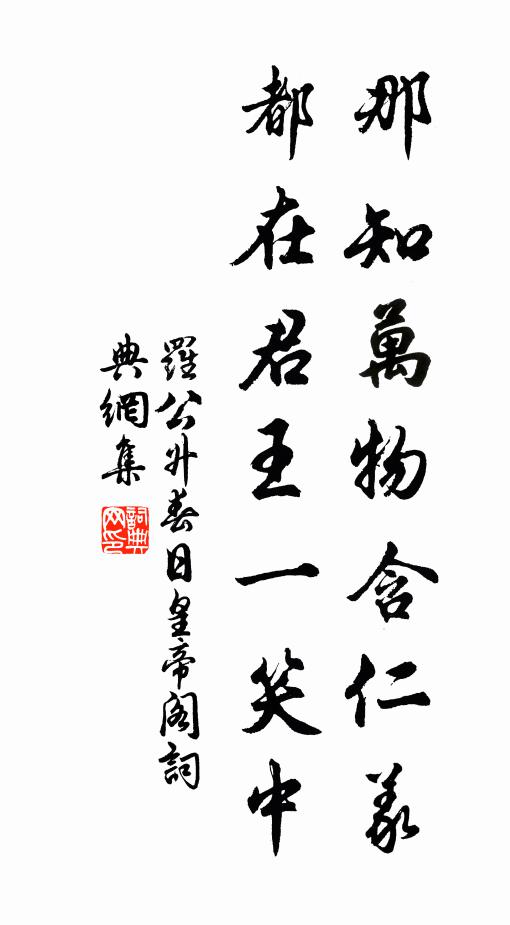 那知萬物含仁義
都在君王一笑中
羅公升春日皇帝阁詞
典網集
詞典
网印